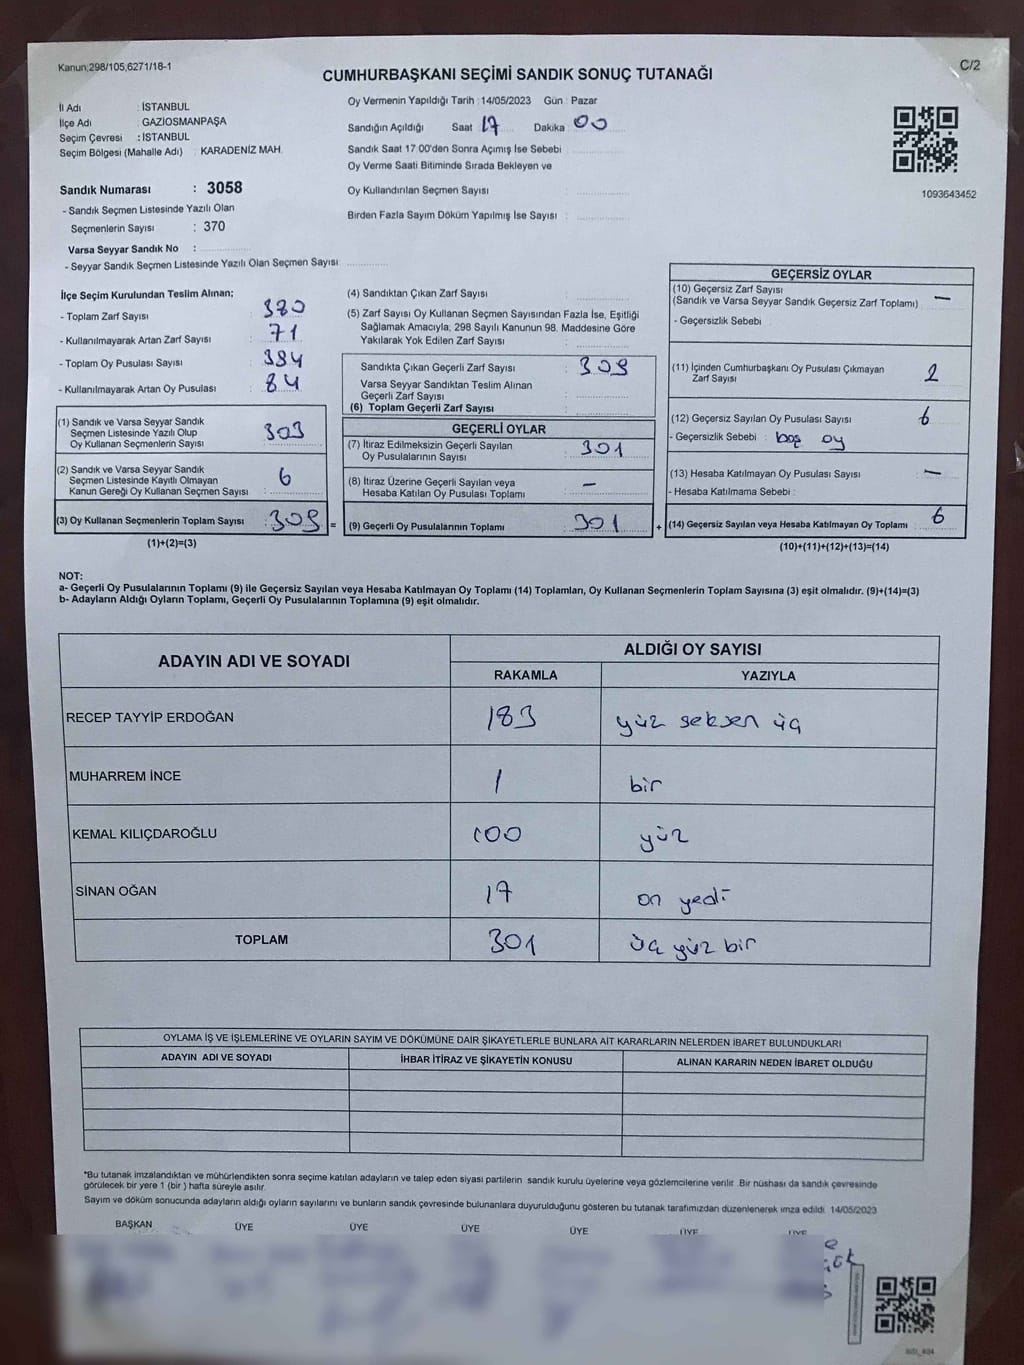 Kanun;298/105,6271/18-1
C/2
CUMHURBAŞKANI SEÇİMİ SANDIK SONUÇ TUTANAĞI
İl Adı : İSTANBUL
İlçe Adı : GAZİOSMANPAŞA
Seçim Çevresi : İSTANBUL
Seçim Bölgesi (Mahalle Adı) : KARADENİZ MAH.
Sandık Numarası : 3058
- Sandık Seçmen Listesinde Yazılı Olan
Seçmenlerin Sayısı : 370
Varsa Seyyar Sandık No :
- Seyyar Sandık Seçmen Listesinde Yazılı Olan Seçmen Sayısı:
Oy Vermenin Yapıldığı Tarih : 14/05/2023 Gün : Pazar
Sandığın Açıldığı Saat 17 Dakika : 00
Sandık Saat 17:00'den Sonra Açımış İse Sebebi :
Oy Verme Saati Bitiminde Sırada Bekleyen ve
Oy Kullandırılan Seçmen Sayısı :
Birden Fazla Sayım Döküm Yapılmış İse Sayısı :
1093643452
İlçe Seçim Kurulundan Teslim Alınan;
- Toplam Zarf Sayısı : 380
- Kullanılmayarak Artan Zarf Sayısı : 71
- Toplam Oy Pusulası Sayısı : 384
- Kullanılmayarak Artan Oy Pusulası : 84
(1) Sandık ve Varsa Seyyar Sandık
Seçmen Listesinde Yazılı Olup
Oy Kullanan Seçmenlerin Sayısı : 303
(2) Sandık ve Varsa Seyyar Sandık
Seçmen Listesinde Kayıtlı Olmayan
Kanun Gereği Oy Kullanan Seçmen Sayısı : 6
(3) Oy Kullanan Seçmenlerin Toplam Sayısı : 309 =
(1)+(2)=(3)
(4) Sandıktan Çıkan Zarf Sayısı :
(5) Zarf Sayısı Oy Kullanan Seçmen Sayısından Fazla İse, Eşitliği
Sağlamak Amacıyla, 298 Sayılı Kanunun 98. Maddesine Göre
Yakılarak Yok Edilen Zarf Sayısı :
Sandıkta Çıkan Geçerli Zarf Sayısı : 309
Varsa Seyyar Sandıktan Teslim Alınan
Geçerli Zarf Sayısı :
(6) Toplam Geçerli Zarf Sayısı :
GEÇERLİ OYLAR
(7) İtiraz Edilmeksizin Geçerli Sayılan
Oy Pusulalarının Sayısı : 301
(8) İtiraz Üzerine Geçerli Sayılan veya
Hesaba Katılan Oy Pusulası Toplamı : -
(9) Geçerli Oy Pusulalarının Toplamı : 301 +
GEÇERSİZ OYLAR
(10) Geçersiz Zarf Sayısı
(Sandık ve Varsa Seyyar Sandık Geçersiz Zarf Toplamı) : -
- Geçersizlik Sebebi :
(11) İçinden Cumhurbaşkanı Oy Pusulası Çıkmayan
Zarf Sayısı : 2
(12) Geçersiz Sayılan Oy Pusulası Sayısı : 6
- Geçersizlik Sebebi : boş oy
(13) Hesaba Katılmayan Oy Pusulası Sayısı : -
- Hesaba Katılmama Sebebi :
(14) Geçersiz Sayılan veya Hesaba Katılmayan Oy Toplamı : 6
(10)+(11)+(12)+(13)=(14)
NOT:
a- Geçerli Oy Pusulalarının Toplamı (9) ile Geçersiz Sayılan veya Hesaba Katılmayan Oy Toplamı (14) Toplamları, Oy Kullanan Seçmenlerin Toplam Sayısına (3) eşit olmalıdır. (9)+(14)=(3)
b- Adayların Aldığı Oyların Toplamı, Geçerli Oy Pusulalarının Toplamına (9) eşit olmalıdır.
ADAYIN ADI VE SOYADI
ALDIĞI OY SAYISI
RAKAMLA YAZIYLA
RECEP TAYYİP ERDOĞAN 183 yüz seksen üç
MUHARREM İNCE 1 bir
KEMAL KILIÇDAROĞLU 100 yüz
SİNAN OĞAN 17 on yedi
TOPLAM 301 üç yüz bir
OYLAMA İŞ VE İŞLEMLERİNE VE OYLARIN SAYIM VE DÖKÜMÜNE DAİR ŞİKAYETLERLE BUNLARA AİT KARARLARIN NELERDEN İBARET BULUNDUKLARI
ADAYIN ADI VE SOYADI İHBAR İTİRAZ VE ŞİKAYETİN KONUSU ALINAN KARARIN NEDEN İBARET OLDUĞU
*Bu tutanak imzalandıktan ve mühürlendikten sonra seçime katılan adayların ve talep eden siyasi partilerin sandık kurulu üyelerine veya gözlemcilerine verilir. Bir nüshası da sandık çevresinde
görülecek bir yere 1 (bir) hafta süreyle asılır.
Sayım ve döküm sonucunda adayların aldığı oyların sayılarını ve bunların sandık çevresinde bulunanlara duyurulduğunu gösteren bu tutanak tarafımızdan düzenlenerek imza edildi. 14/05/2023
BAŞKAN ÜYE ÜYE ÜYE ÜYE ÜYE ÜYE